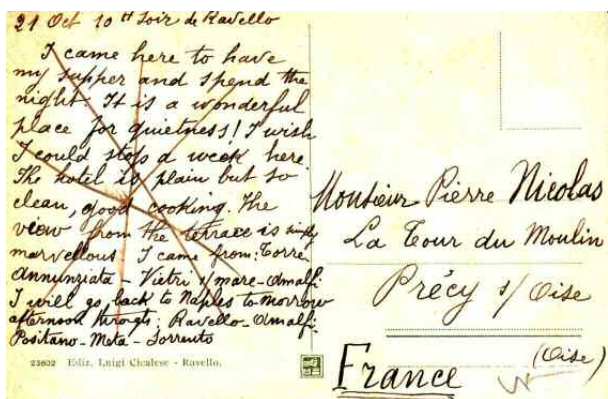 21 Oct 10 H Soir de Ravello
I came here to have
my supper and spend the
night. It is a wonderful
place for quietness! I wish
I could stop a week here.
The hotel is plain but so
clean, good cooking. The
view from the terrace is simply
marvellous! I came from: Torre
Annunziata - Vietri s/mare - Amalfi
I will go back to Naples to-morrow
afternoon through: Ravello - Amalfi -
Positano - Meta - Sorrento
23602 Ediz. Luigi Cicalese - Ravello.
Monsieur Pierre Nicolas
La Tour du Moulin
Précy s/ Oise
(Oise)
France